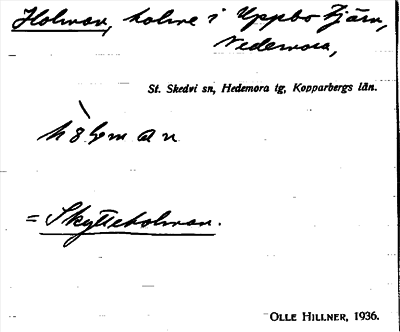 Holman, holme i Uppbo Tjärn,
Nedemora,
St. Skedvi sn, Hedemora tg, Kopparbergs län.
= Skytteholman.
OLLE HILLNER, 1936.